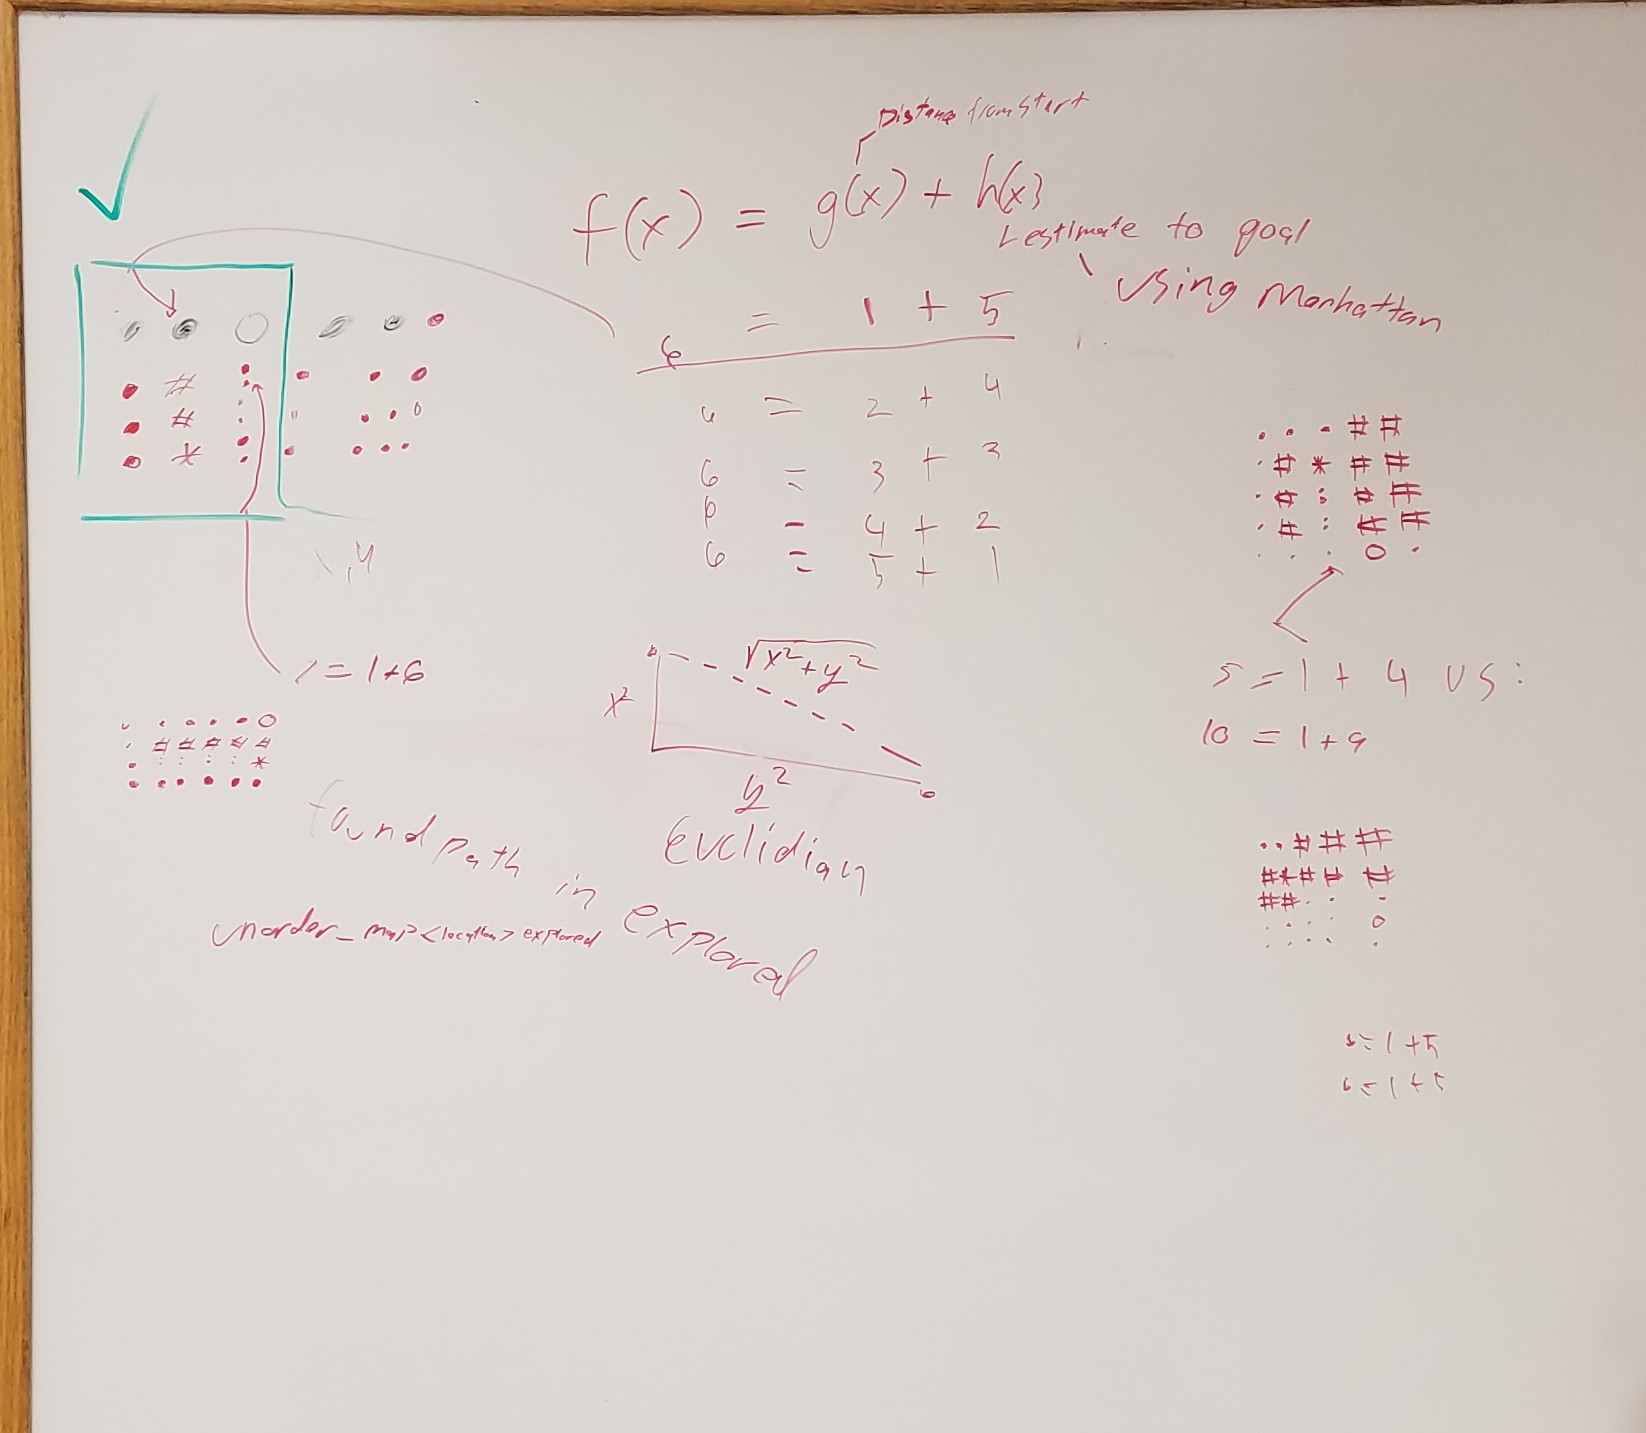 Distance from start
f(x) = g(x) + h(x)
estimate to goal
using Manhattan
6 = 1 + 5
6 = 2 + 4
6 = 3 + 3
6 = 4 + 2
6 = 5 + 1
# 
#
*
= 1+6
# # # # #
*
√x²+y²
x²
y²
Euclidian
found path in explored
unorder_map<location> explored
. . . # #
. # * # #
. # : # #
. # : # #
. . . O .
5 = 1 + 4 vs:
10 = 1+9
. . # # #
# * # # #
# # . . .
. . . . O
. . . . .
6 = 1 + 5
6 = 1 + 5